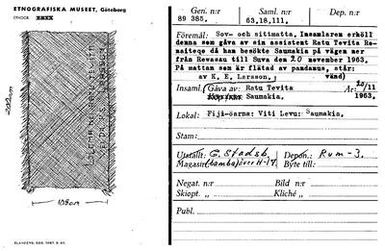 ETNOGRAFISKA MUSEET, Göteborg
200cm
108cm
ELANDERS, GBG. 1957. B 60.
Gen. n:r
89 385.
Saml. n:r
63,18,111.
Dep. n:r
Föremål: Sov- och sittmatta, Insamlaren erhöll
denna som gåva av sin assistent Ratu Tevita Re-
maiteqe då han besökte Saumakia på vägen mer
från Revasau till Suva den 20 november 1963.
På mattan som är flätad av pandanus, står:
av K. E. Larsson, vänd)
Insaml. Gåva av: Ratu Tevita År: 20/11
Saumakia, 1963.
Lokal: Fiji-öarna: Viti Levu: Saumakia.
Stam:
Utställt: G. Stadsb. Depon.: Rum-3.
Magasin: (bambu) över H-19. Byte till:
Negat. n:r Bild n:r
Skiopt. „ Kliché „
Publ.